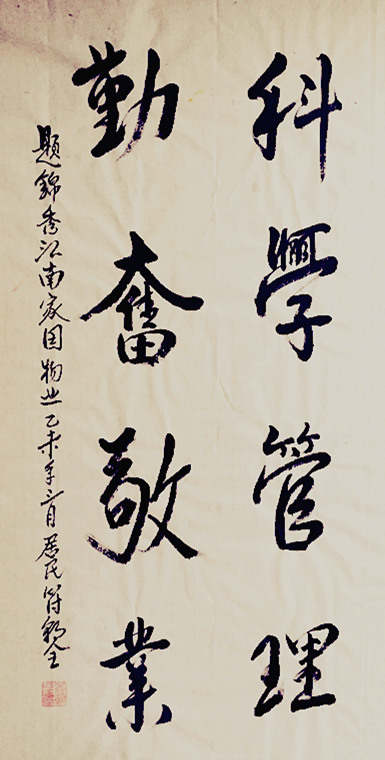 科學管理
勤奮敬業
題錦秀江南家园物业乙未年二月居民符